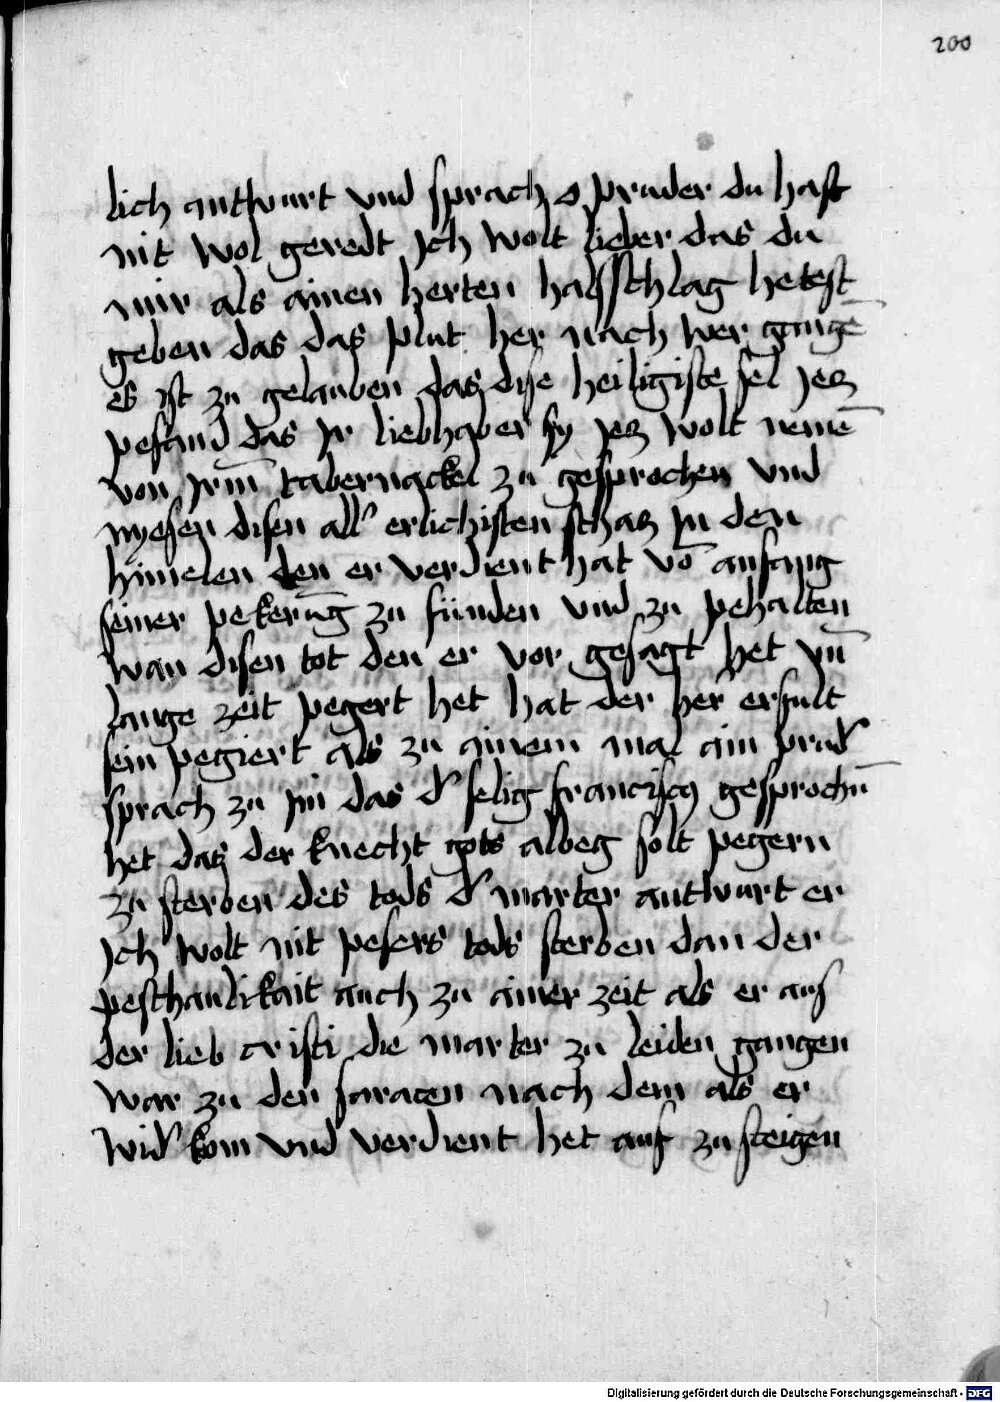 200
lich antwurt vnd sprach o pruder du hast
nit wol geredt Jch wolt lieber das du
mir als ainen herten halsschlag hetest
geben das das plut her nach wer gangē
es ist zu gelauben das dise heiligiste sel jecz
pefand das jr liebhaber sy jecz wolt nemē
von jrm̄ tabernackel zu gesprochen vnd
nyesen disen all' erlichisten schacz jn den
himelen den er verdient hat vō anfang
seiner pekerūg zu fünden vnd zu pehalten
wan disen tot den er vor gesagt het vn̄
lange zeit pegert het hat der her erfult
sein pegiert als zu ainem mal ain prud'
sprach zu jm das d' selig franciscus gesprochn̄
het das der knecht gots albeg solt pegern
zu sterben des tods d' marter antwurt er
Jch wolt nit pesers tods sterben dan der
peschaulikait auch zu ainer zeit als er aus
der lieb cristi die marter zu leiden gangen
war zu den saracen nach dem als er
wid' kom vnd verdient het auf zu steigen
Digitalisierung gefördert durch die Deutsche Forschungsgemeinschaft - DFG